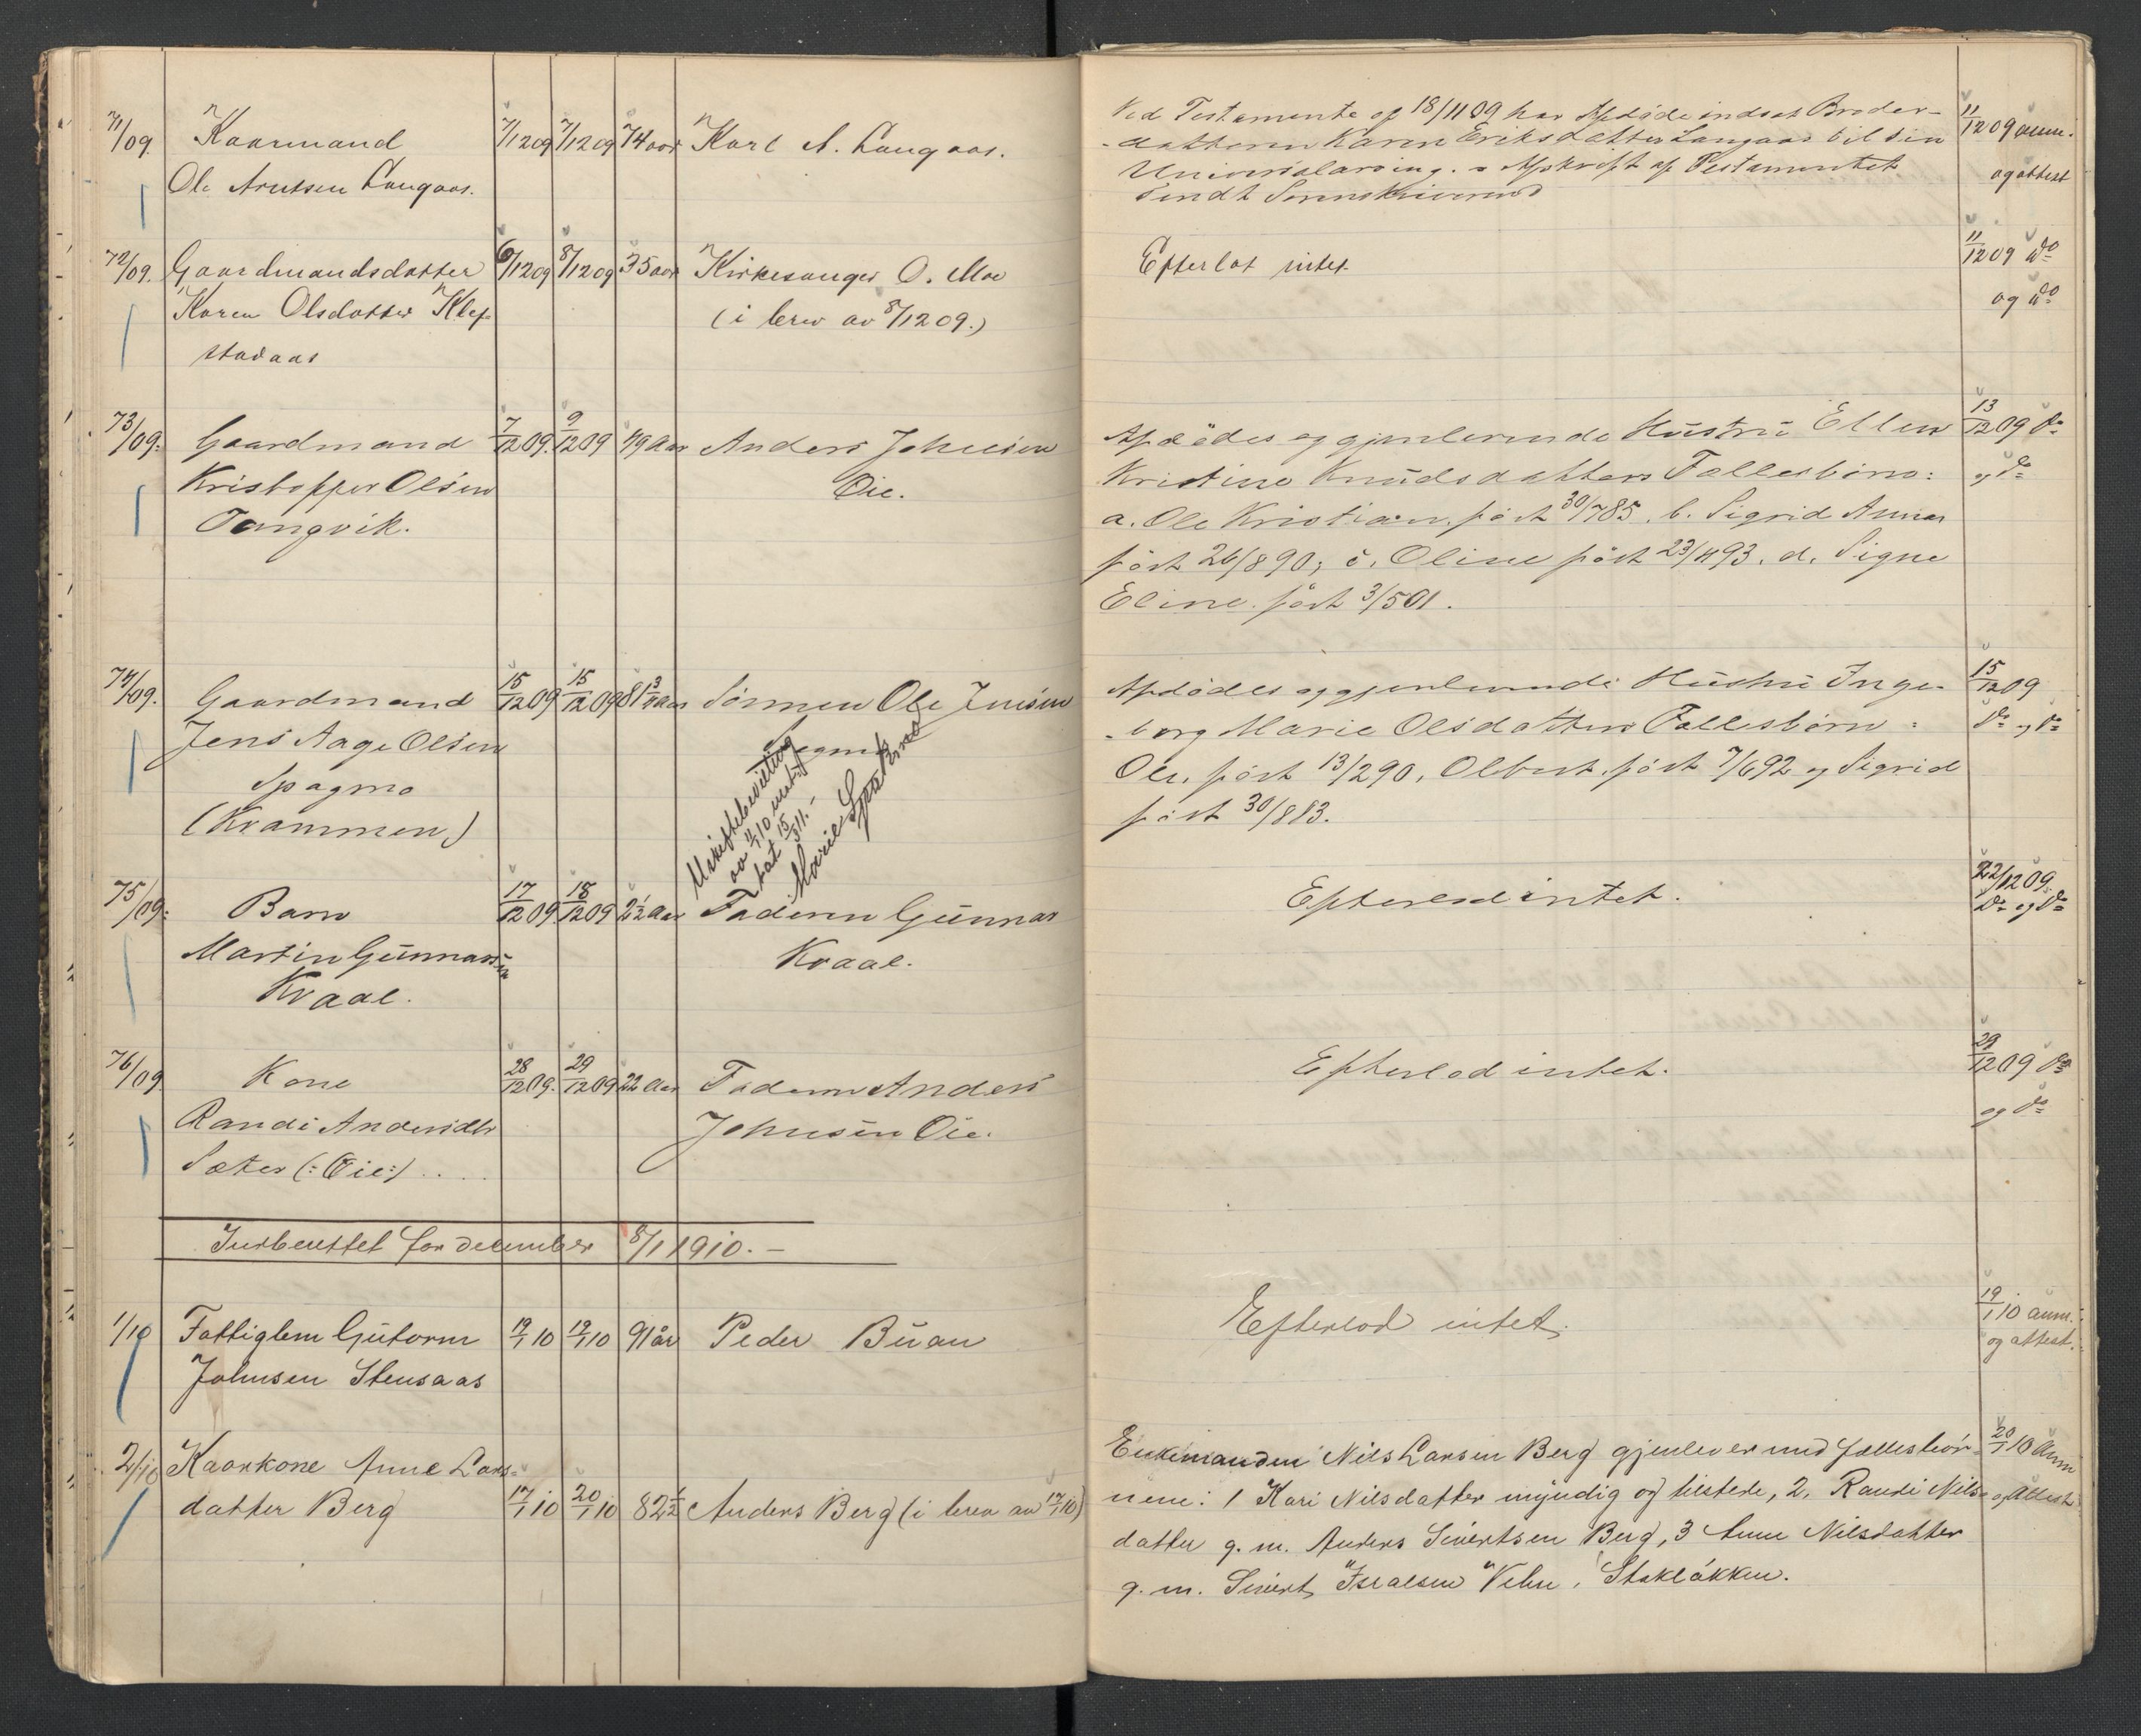 71/09. Kaarmand 7/12 09 7/12 09 74 aar Karl A. Langaas. Ved Testamente af 18/11 09 har Afdøde indsat Broder- 11/12 09 anm.
Ole Arntsen Langaas. -datteren Karen Eriksdatter Langaas til sin
Universalarving. Afskrift af Testamentet og attest
sendt Sorenskriveren
72/09. Gaardmandsdatter 6/12 09 8/12 09 35 aar Kirkesanger O. Moe Efterlot intet. 11/12 09 do
Karen Olsdatter Klef- (i brev av 8/12 09.) og do
stadaas
73/09. Gaardmand 7/12 09. 9/12 09 49 Aar Anders Johnsen Afdødes og gjenlevende Hustru Ellen 13/12 09 do
Kristoffer Olsen Øie. Kristine Knudsdatters Fællesbørn: og do
Tangvik. a. Ole Kristian, født 30/7 85. b. Sigrid Anna
født 26/8 90; c. Oline født 23/4 93. d. Signe
Eline født 3/5 01.
74/09. Gaardmand 15/12 09 15/12 09 81 3/4 Aar Sønnen Ole Jensen Afdødes og gjenlevende Hustru Inge- 15/12 09
Jens Aage Olsen -borg Marie Olsdatters Fællesbørn: do og do
Spagmo Ole, født 13/2 90, Olbert, født 7/6 92 og Sigrid
(Krammen) født 30/8 83.
Uskiftebevilling
av 11/1 10 mottat 15/3 11.-
Marie Spakmo
75/09. Barn 17/12 09. 18/12 09 2 1/2 Aar Faderen Gunnar Efterlod intet. 22/12 09.
Martin Gunnarsen Kraal. do og do
Kraal.
76/09 Kone 28/12 09. 29/12 09 22 Aar Faderen Anders Efterlod intet. 29/12 09 do
Randi Andersdtr Johnsen Øie. og do
Sæter (: Øie:) ....
Indberettet for december 8/1 1910.-
1/10 Fattiglem Gutorm 19/1 10 19/1 10 91 år Peder Buan Efterlod intet. 19/1 10 anm.
Johnsen Stensaas og attest.
2/10 Kaarkone Anne Lars- Enkemanden Nils Larsen Berg gjenlever med fællesbør- 20/1 10 Anm
datter Berg 17/1 10 20/1 10 82 1/2 Anders Berg (i brev av 17/1 10) nene: 1 Kari Nilsdatter myndig og tilstede, 2. Randi Nils- og Attest
datter g. m. Anders Sivertsen Berg, 3 Anne Nilsdatter
g. m. Sivert Israelsen Vehn, Stakløkken.